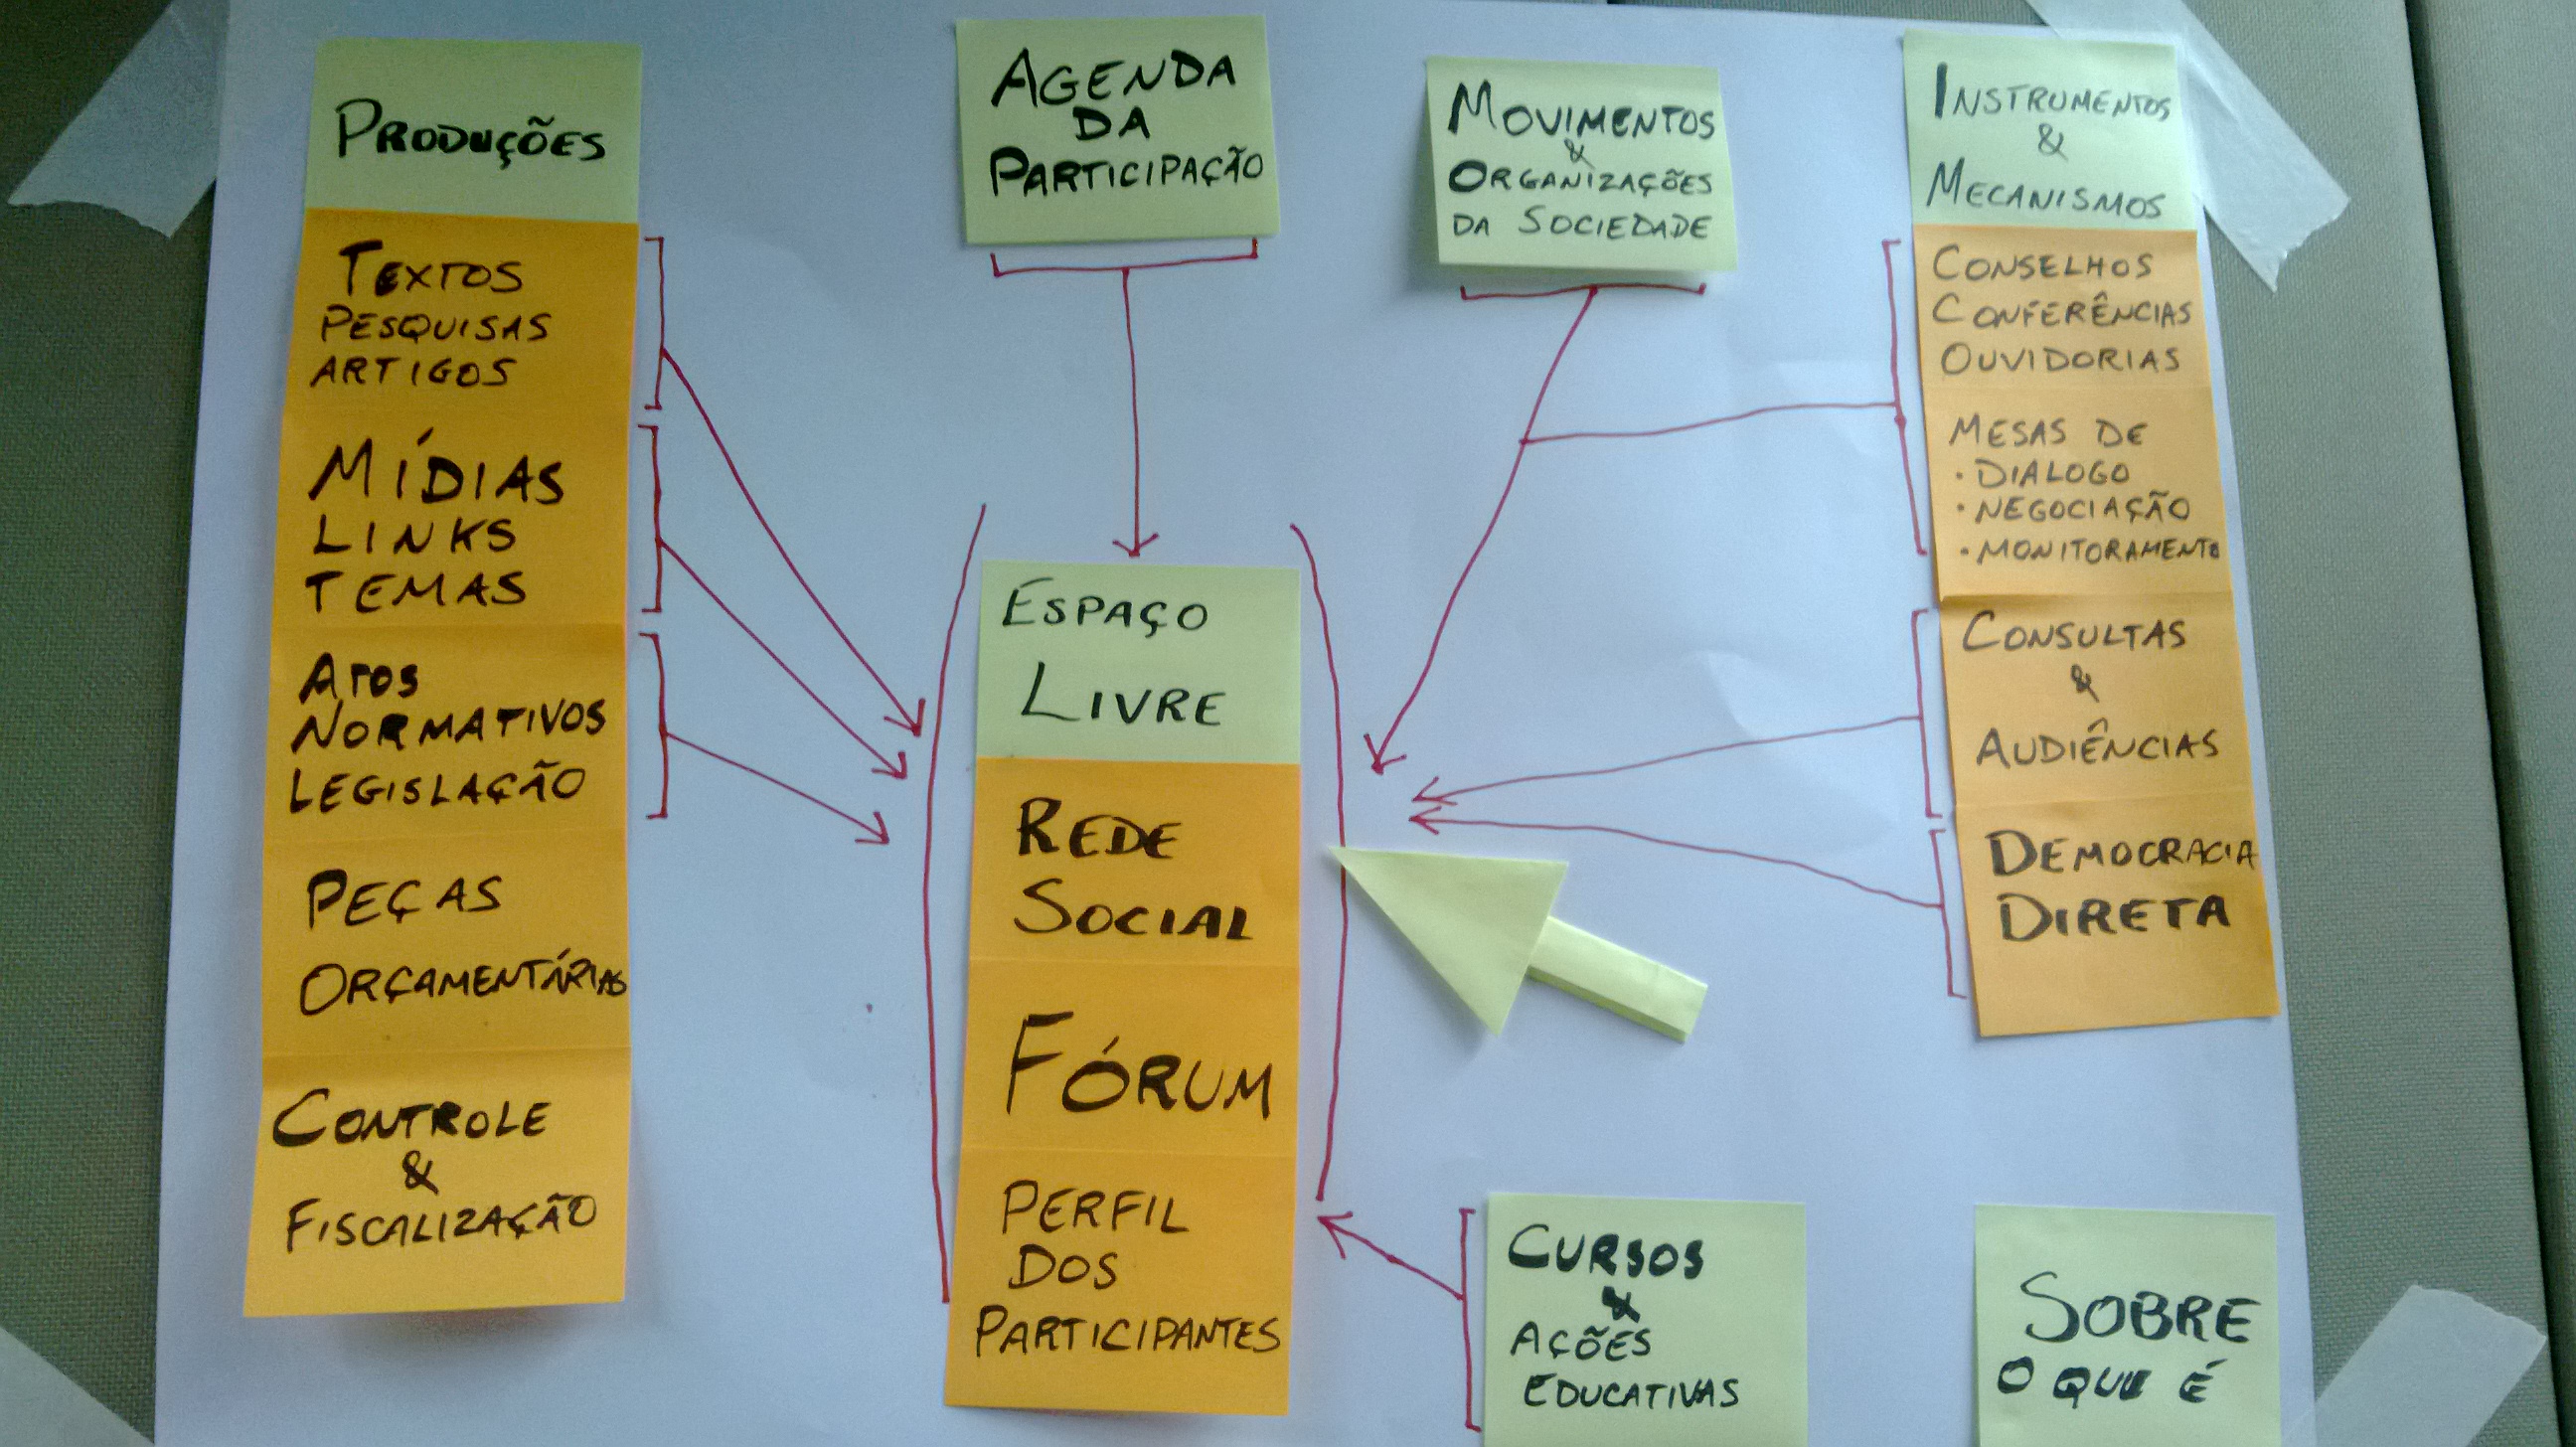 PRODUÇÕES
TEXTOS
PESQUISAS
ARTIGOS
MÍDIAS
LINKS
TEMAS
ATOS
NORMATIVOS
LEGISLAÇÃO
PEÇAS
ORÇAMENTÁRIAS
CONTROLE
&
FISCALIZAÇÃO
AGENDA
DA
PARTICIPAÇÃO
ESPAÇO
LIVRE
REDE
SOCIAL
FÓRUM
PERFIL
DOS
PARTICIPANTES
MOVIMENTOS
&
ORGANIZAÇÕES
DA SOCIEDADE
INSTRUMENTOS
&
MECANISMOS
CONSELHOS
CONFERÊNCIAS
OUVIDORIAS
MESAS DE
• DIALOGO
• NEGOCIAÇÃO
• MONITORAMENTO
CONSULTAS
&
AUDIÊNCIAS
DEMOCRACIA
DIRETA
CURSOS
&
AÇÕES
EDUCATIVAS
SOBRE
O QUE É